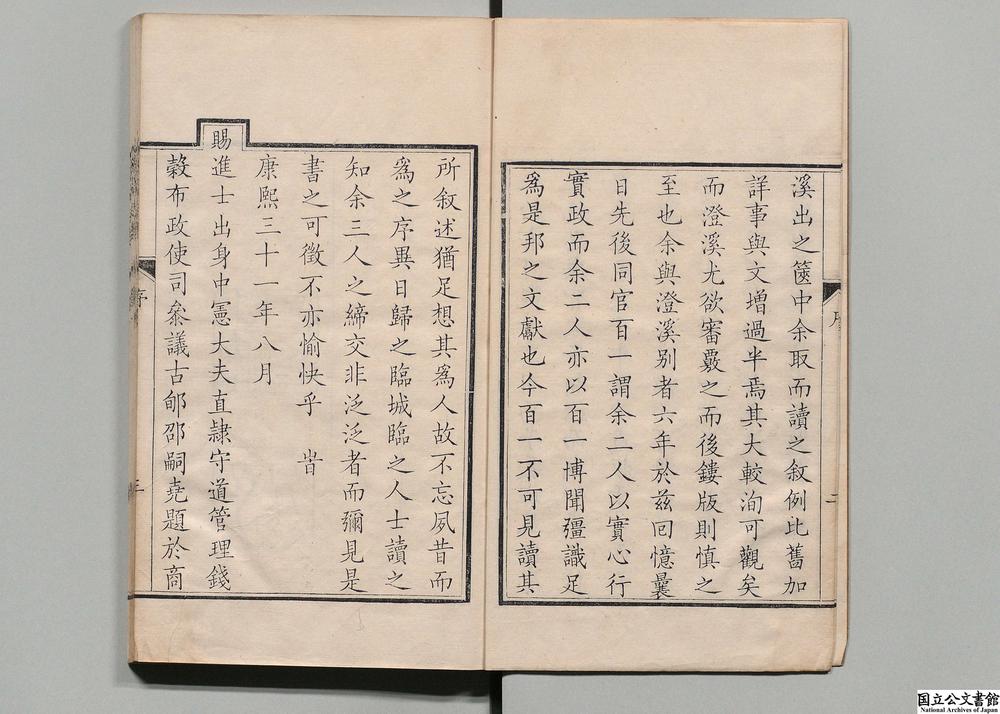 溪出之篋中余取而讀之敘例比舊加
詳事與文增過半焉其大較洵可觀矣
而澄溪尤欲審覈之而後鏤版則慎之
至也余與澄溪別者六年於茲囘憶曩
日先後同官百一謂余二人以實心行
實政而余二人亦以百一博聞彊識足
爲是邦之文獻也今百一不可見讀其
所敘述猶足想其爲人故不忘夙昔而
爲之序異日歸之臨城臨之人士讀之
知余三人之締交非泛泛者而彌見是
書之可徵不亦愉快乎 旹
康熙三十一年八月
賜進士出身中憲大夫直隸守道管理錢
穀布政使司叅議古郇邵嗣堯題於商
序
三
二
国立公文書館
National Archives of Japan